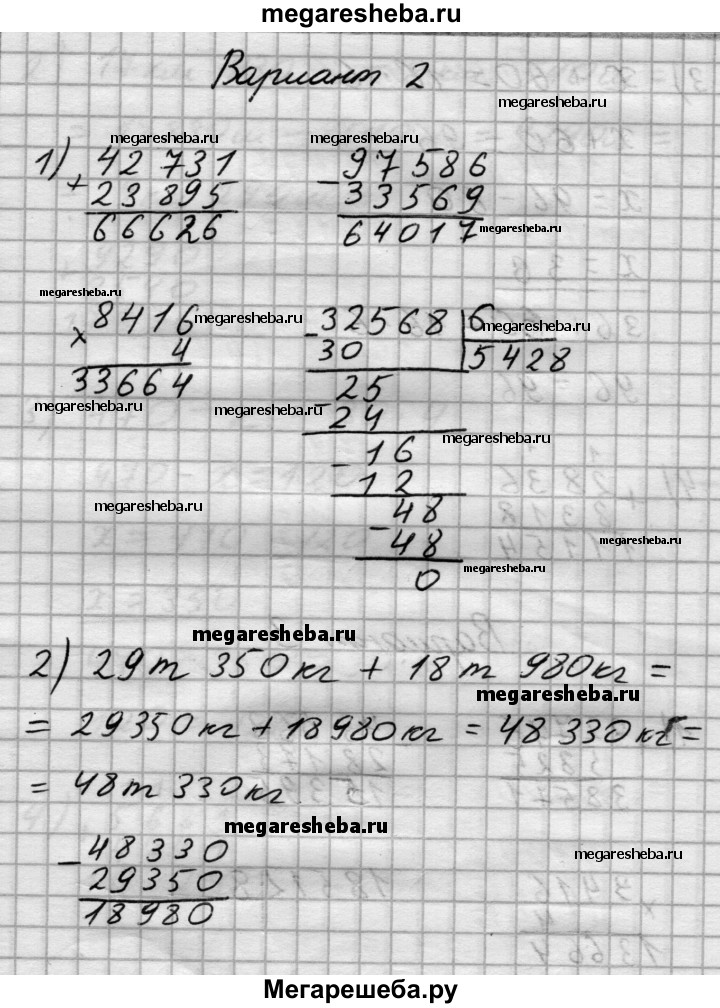 megaresheba.ru
Вариант 2
megaresheba.ru
megaresheba.ru
megaresheba.ru
1) 42 731
+ 23 895
66626
97586
- 33569
64017
megaresheba.ru
megaresheba.ru
8416
× 4
33664
megaresheba.ru
megaresheba.ru
- 32568 | 6
30 | 5428
megaresheba.ru
- 25
24
megaresheba.ru
megaresheba.ru
- 16
12
megaresheba.ru
- 48
48
0
megaresheba.ru
megaresheba.ru
2) 29т 350кг + 18т 980кг =
megaresheba.ru
= 29350кг + 18980кг = 48 330кг =
= 48т 330кг
megaresheba.ru
- 48330
29350
18980
megaresheba.ru
Мегарешеба.ру